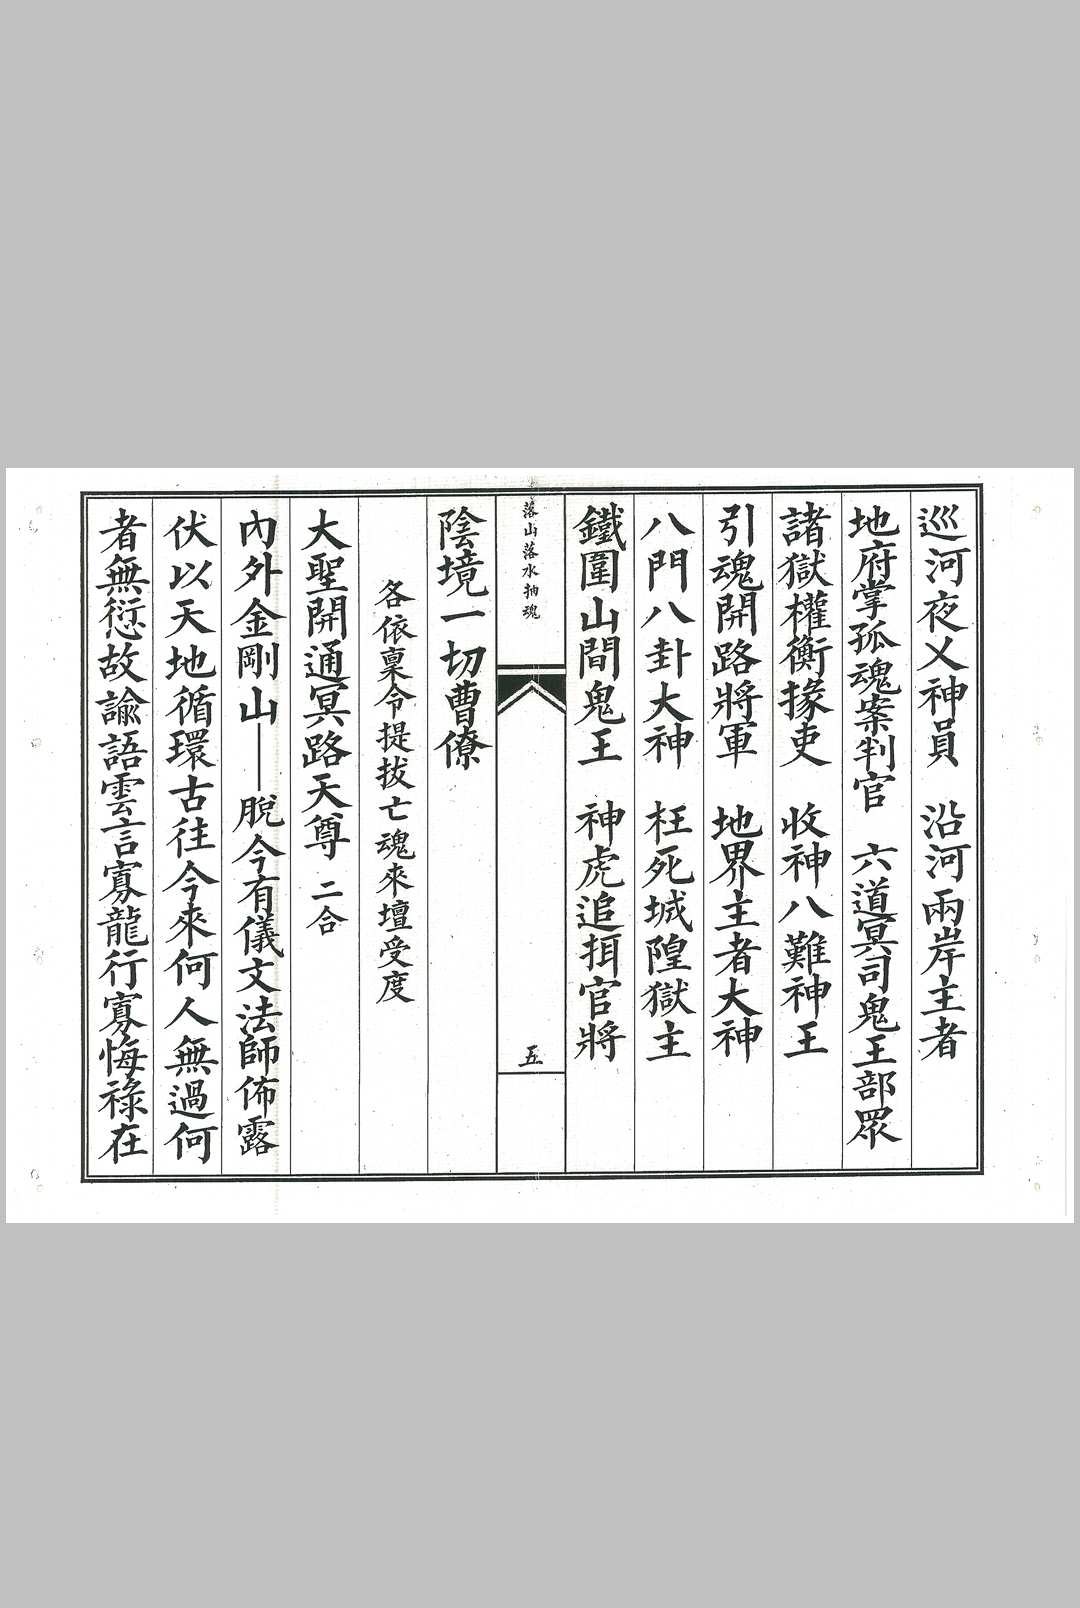 巡河夜乂神員　沿河兩岸主者
地府掌孤魂案判官　六道冥司鬼王部眾
諸獄權衡掾吏　收神八難神王
引魂開路將軍　地界主者大神
八門八卦大神　枉死城隍獄主
鐵圍山間鬼王　神虎追捐官將
落山落水抽魂
五
陰境一切曹僚
各依稟令提拔亡魂來壇受度
大聖開通冥路天尊　二合
內外金剛山——脫今有儀文法師佈露
伏以天地循環古往今來何人無過何
者無愆故諭語雲言寡龍行寡悔祿在